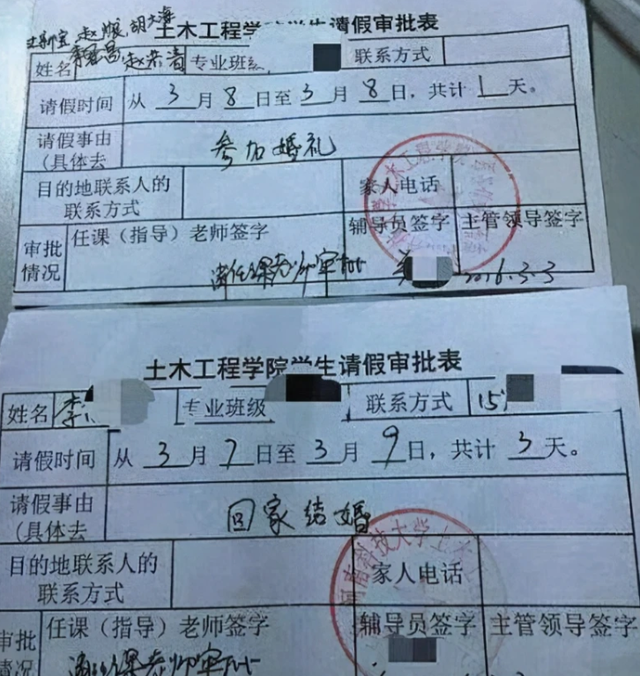 赵媛 胡文海
土木工程学院学生请假审批表
姓名 赵荣清 专业班级 联系方式
请假时间 从 3 月 8 日至 3 月 8 日，共计 1 天。
请假事由
（具体去
参加婚礼
目的地联系人的
联系方式
家人电话
审批
情况
任课（指导）老师签字
辅导员签字 主管领导签字
请任课老师审批
2016.3.3
土木工程学院学生请假审批表
姓名 李 专业班级 联系方式 15
请假时间 从 3 月 7 日至 3 月 9 日，共计 3 天。
请假事由
（具体去
回家结婚
目的地联系人的
联系方式
家人电话
审批
情况
任课（指导）老师签字
辅导员签字 主管领导签字
请任课老师审批
科技大学土木